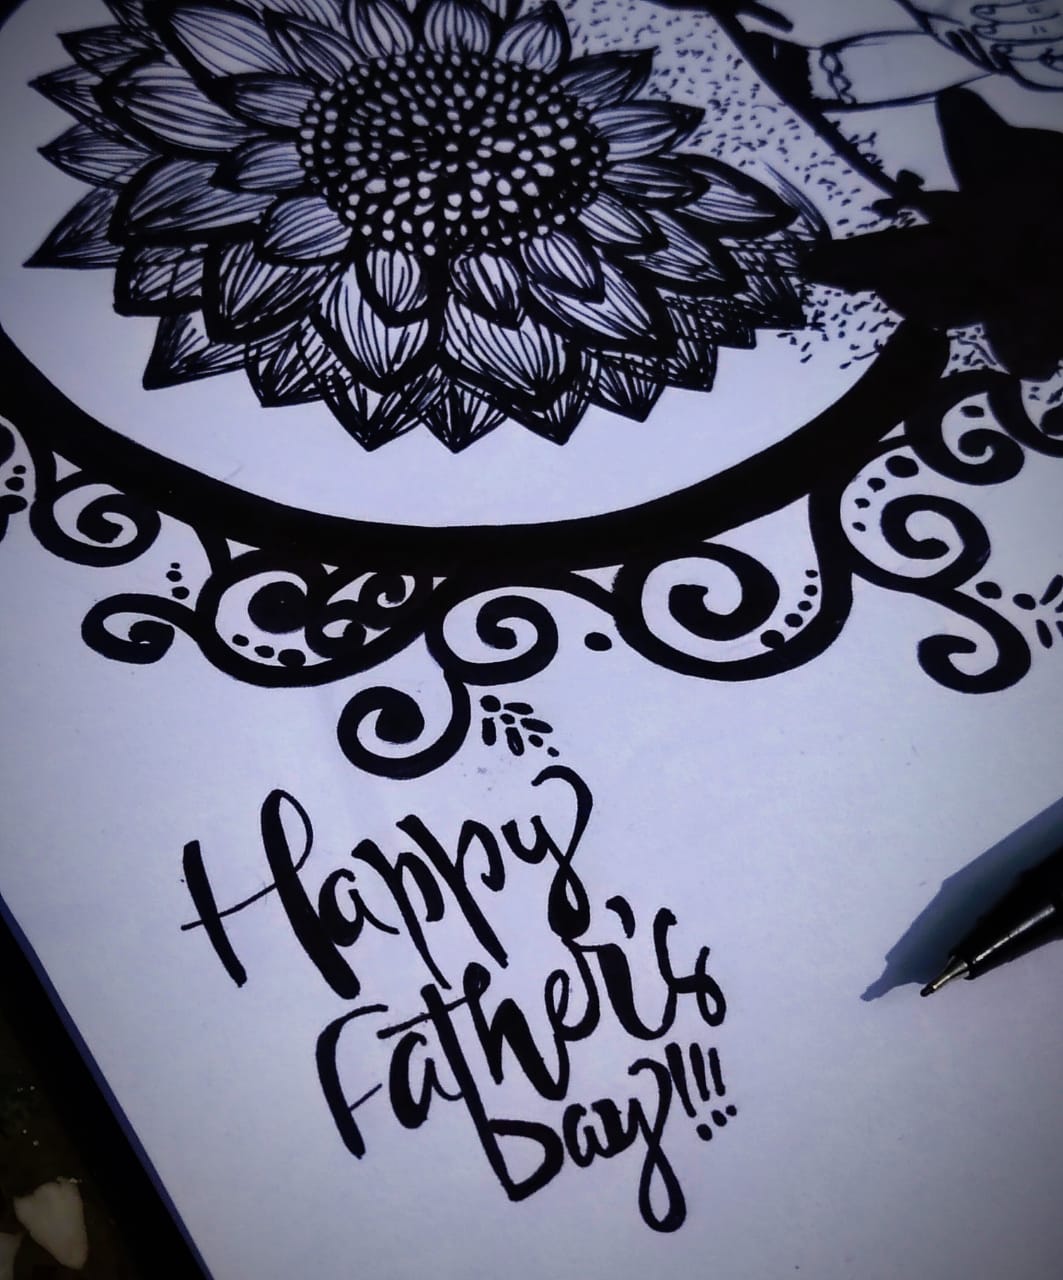 Happy
Father's
Day!!!